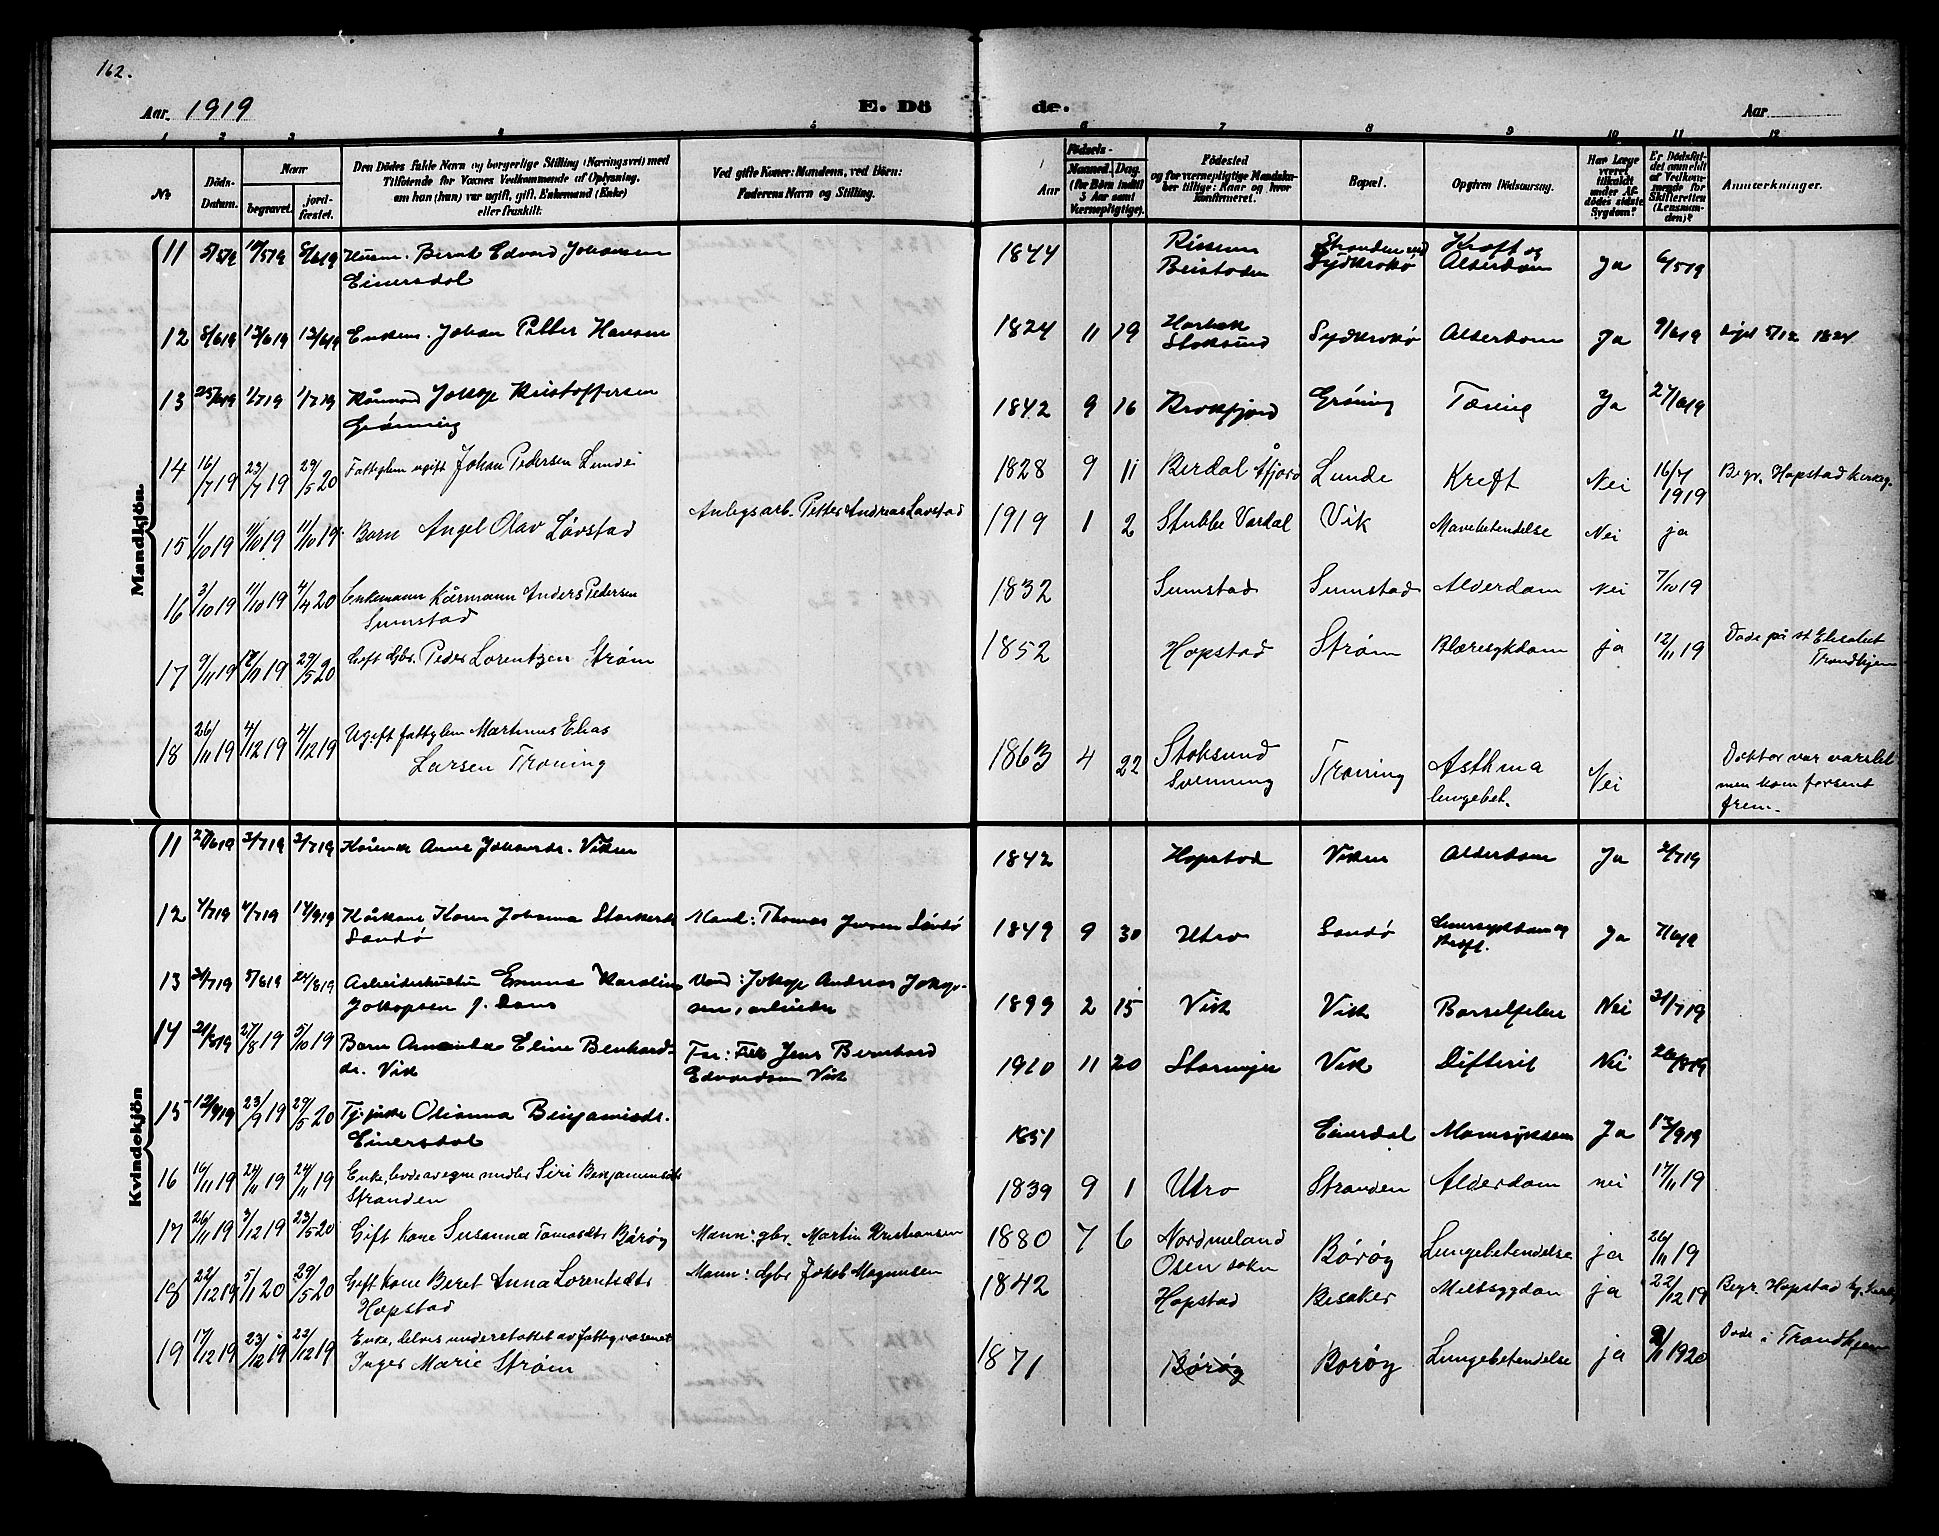 162.
Aar. 1919
E. Dö de.
Aar
1 2 3 4 5 6 7 8 9 10 11 12
No
Döds-Datum.
Naar
begravet. jord-fæstet.
Den Dödes fulde Navn og borgerlige Stilling (Næringsvei) med
Tilföiende for Voxnes Vedkommende af Oplysning,
om han (hun) var ugift, gift, Enkemand (Enke)
eller fraskilt.
Ved gifte Koner: Mandens, ved Börn:
Faderens Navn og Stilling.
Födsels-
Aar
Maaned. Dag.
(for Börn indtil
3 Aar samt
Værnepligtige).
Födested
og for værnepligtige Mandska-
ber tillige: Naar og hvor
konfirmeret.
Bopæl.
Opgiven Dödsaarsag.
Har Læge
været
tilkaldt
under Af-
dödes sidste
Sygdom?
Er Dödsfal-
det anmeldt
af Vedkom-
mende for
Skifteretten
(Lensman-
den)?
Anmærkninger.
Mandkjön.
11 5/5 19 10/5 19 8/6 19 Husm. Bernt Edvard Johansen 1844 Rissem Stranden ved Kræft og
Einersdal Beistaden Sydkrokø Alderdom Ja 6/5 19
12 8/6 19 13/6 19 13/6 19 Enkem. Johan Petter Hansen 1824 11 19 Harbak Sydkrokø Alderdom Ja 9/6 19
Stoksund
13 25/6 19 1/7 19 1/7 19 Kårmand Jakop Kristoffersen 1842 9 16 Brokfjord Grøning Tæring Ja 27/6 19
Grønning
14 16/7 19 23/7 19 29/5 20 Fattiglem ugift Johan Pedersen Lunde 1828 9 11 Berdal Åfjord Lunde Kreft Nei 16/7 1919 Begr. Hopstad kirkeg.
15 1/10 19 11/10 19 11/10 19 Barn Angel Olav Løvstad Anlegsarb. Petter Andreas Løvstad 1919 1 2 Stubbe Vardal Vik Mavebetendelse Nei ja
16 3/10 19 11/10 19 4/4 20 Enkemann kårmann Anders Pedersen 1832 Sumstad Sumstad Alderdom Nei 7/10 19
Sumstad
17 9/11 19 18/11 19 29/5 20 Gift Gbr. Peder Lorentzen Strøm 1852 Hopstad Strøm Blæresykdom ja 12/11 19 Døde på St Elisabet
Trondhjem
18 26/11 19 4/12 19 4/12 19 Ugift fattiglem Martinus Elias
Larsen Trøning 1863 4 22 Stoksund Trøning Asthma Nei Doktor var varslet
Svenning lungebet. men kom forsent
frem.
Kvindekjön
11 27/6 19 3/7 19 3/7 19 Kårenke Anne Johansdr. Viken 1842 Hopstad Viken Alderdom Ja 2/7 19
12 4/7 19 14/9 19 Kårkone Karen Johanna Mand: Thomas Jensen Sandø 1849 9 30 Utro Sandø Ja
Sandø
13 31/7 19 5/8 19 24/8 19 Arbeiderhustru Emma Karoline Mand: Jakop Andreas Jakop- 1899 2 15 Vik Vik Barselfeber Nei 31/7 19
Jakopsen f. Dans sen, arbeider
14 21/8 19 27/8 19 5/10 19 Barn Amanda Eline Benhard- Far: Jens Bernhard 1910 11 20 Vik Difterit Nei
dr. Vik Edvardsen Vik
15 12/9 19 23/9 19 29/5 20 Olianna Benjaminsdr. 1851 Einersdal Ja 13/9 19
Einersdal
16 16/11 19 24/11 19 24/11 19 Enke, levde av egne midler Siri Benjaminsdtr 1839 9 1 Utro Stranden Alderdom nei 17/11 19
Stranden
17 26/11 19 3/12 19 23/5 20 Gift kone Susanna Tomasdtr Børøy Mann: gbr. Martin Kristiansen 1880 7 6 Nordmeland Børøy Lungebetendelse ja 26/11 19
Osen sokn
18 22/12 19 5/1 20 29/5 20 Gift kone Beret Anna Lorentsdtr Mann: Gbr Jakob Magnussen 1842 Hopstad Besaker Miltsygdom ja 22/12 19 Begr. Hopstad
Hopstad
19 17/12 19 23/12 19 23/12 19 Enke, delvis understøttet av fattigvæsenet 1871 Børøy Borøy Lungebetendelse ja 2/1 1920 Døde i Trondhjem
Inger Marie Strøm